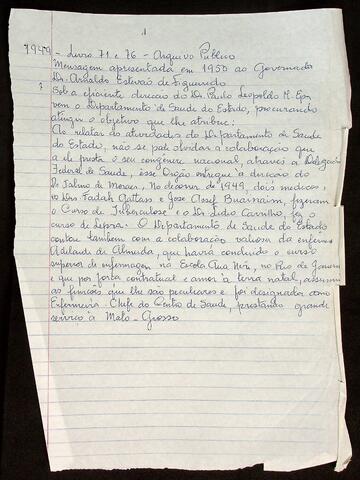 1949 - Livro 71 e 76 - Arquivo Público
Mensagem apresentada em 1950 ao Governador
Dr. Arnaldo Estevão de Figueiredo
? Sob a eficiente direcão do Dr. Paulo Leopoldo M.
vem o Departamento de Saude do Estado, procurando
atingir o objetivo que lhe atribue:
Ao relatar as atividades do Departamento de Saude
do Estado, não se pode olvidar a colaboração que
a ele presta o seu congenere nacional, através a Delegacia
Federal de Saude, êsse Orgão entregue a direcão do
Dr Jalmo de Moraes. No decorrer de 1949, dois medicos,
os Drs. Fadah Gattass e José Assef Buainaim, fizeram
o Curso de Tuberculose e o Dr. Ludio Carvalho, fez o
curso de Lepra. O Departamento de Saude do Estado
contou tambem com a colaboração valiosa da enfermeira
Adelaide de Almeida, que havia concluido o curso
superior de enfermagem na Escola Ana Neri, no Rio de Janeiro
e que por força contratual e amor à terra natal, assumiu
as funcões que lhe são peculiares e foi designada como
Enfermeira Chefe do Centro de Saude, prestando grande
servico à Mato-Grosso